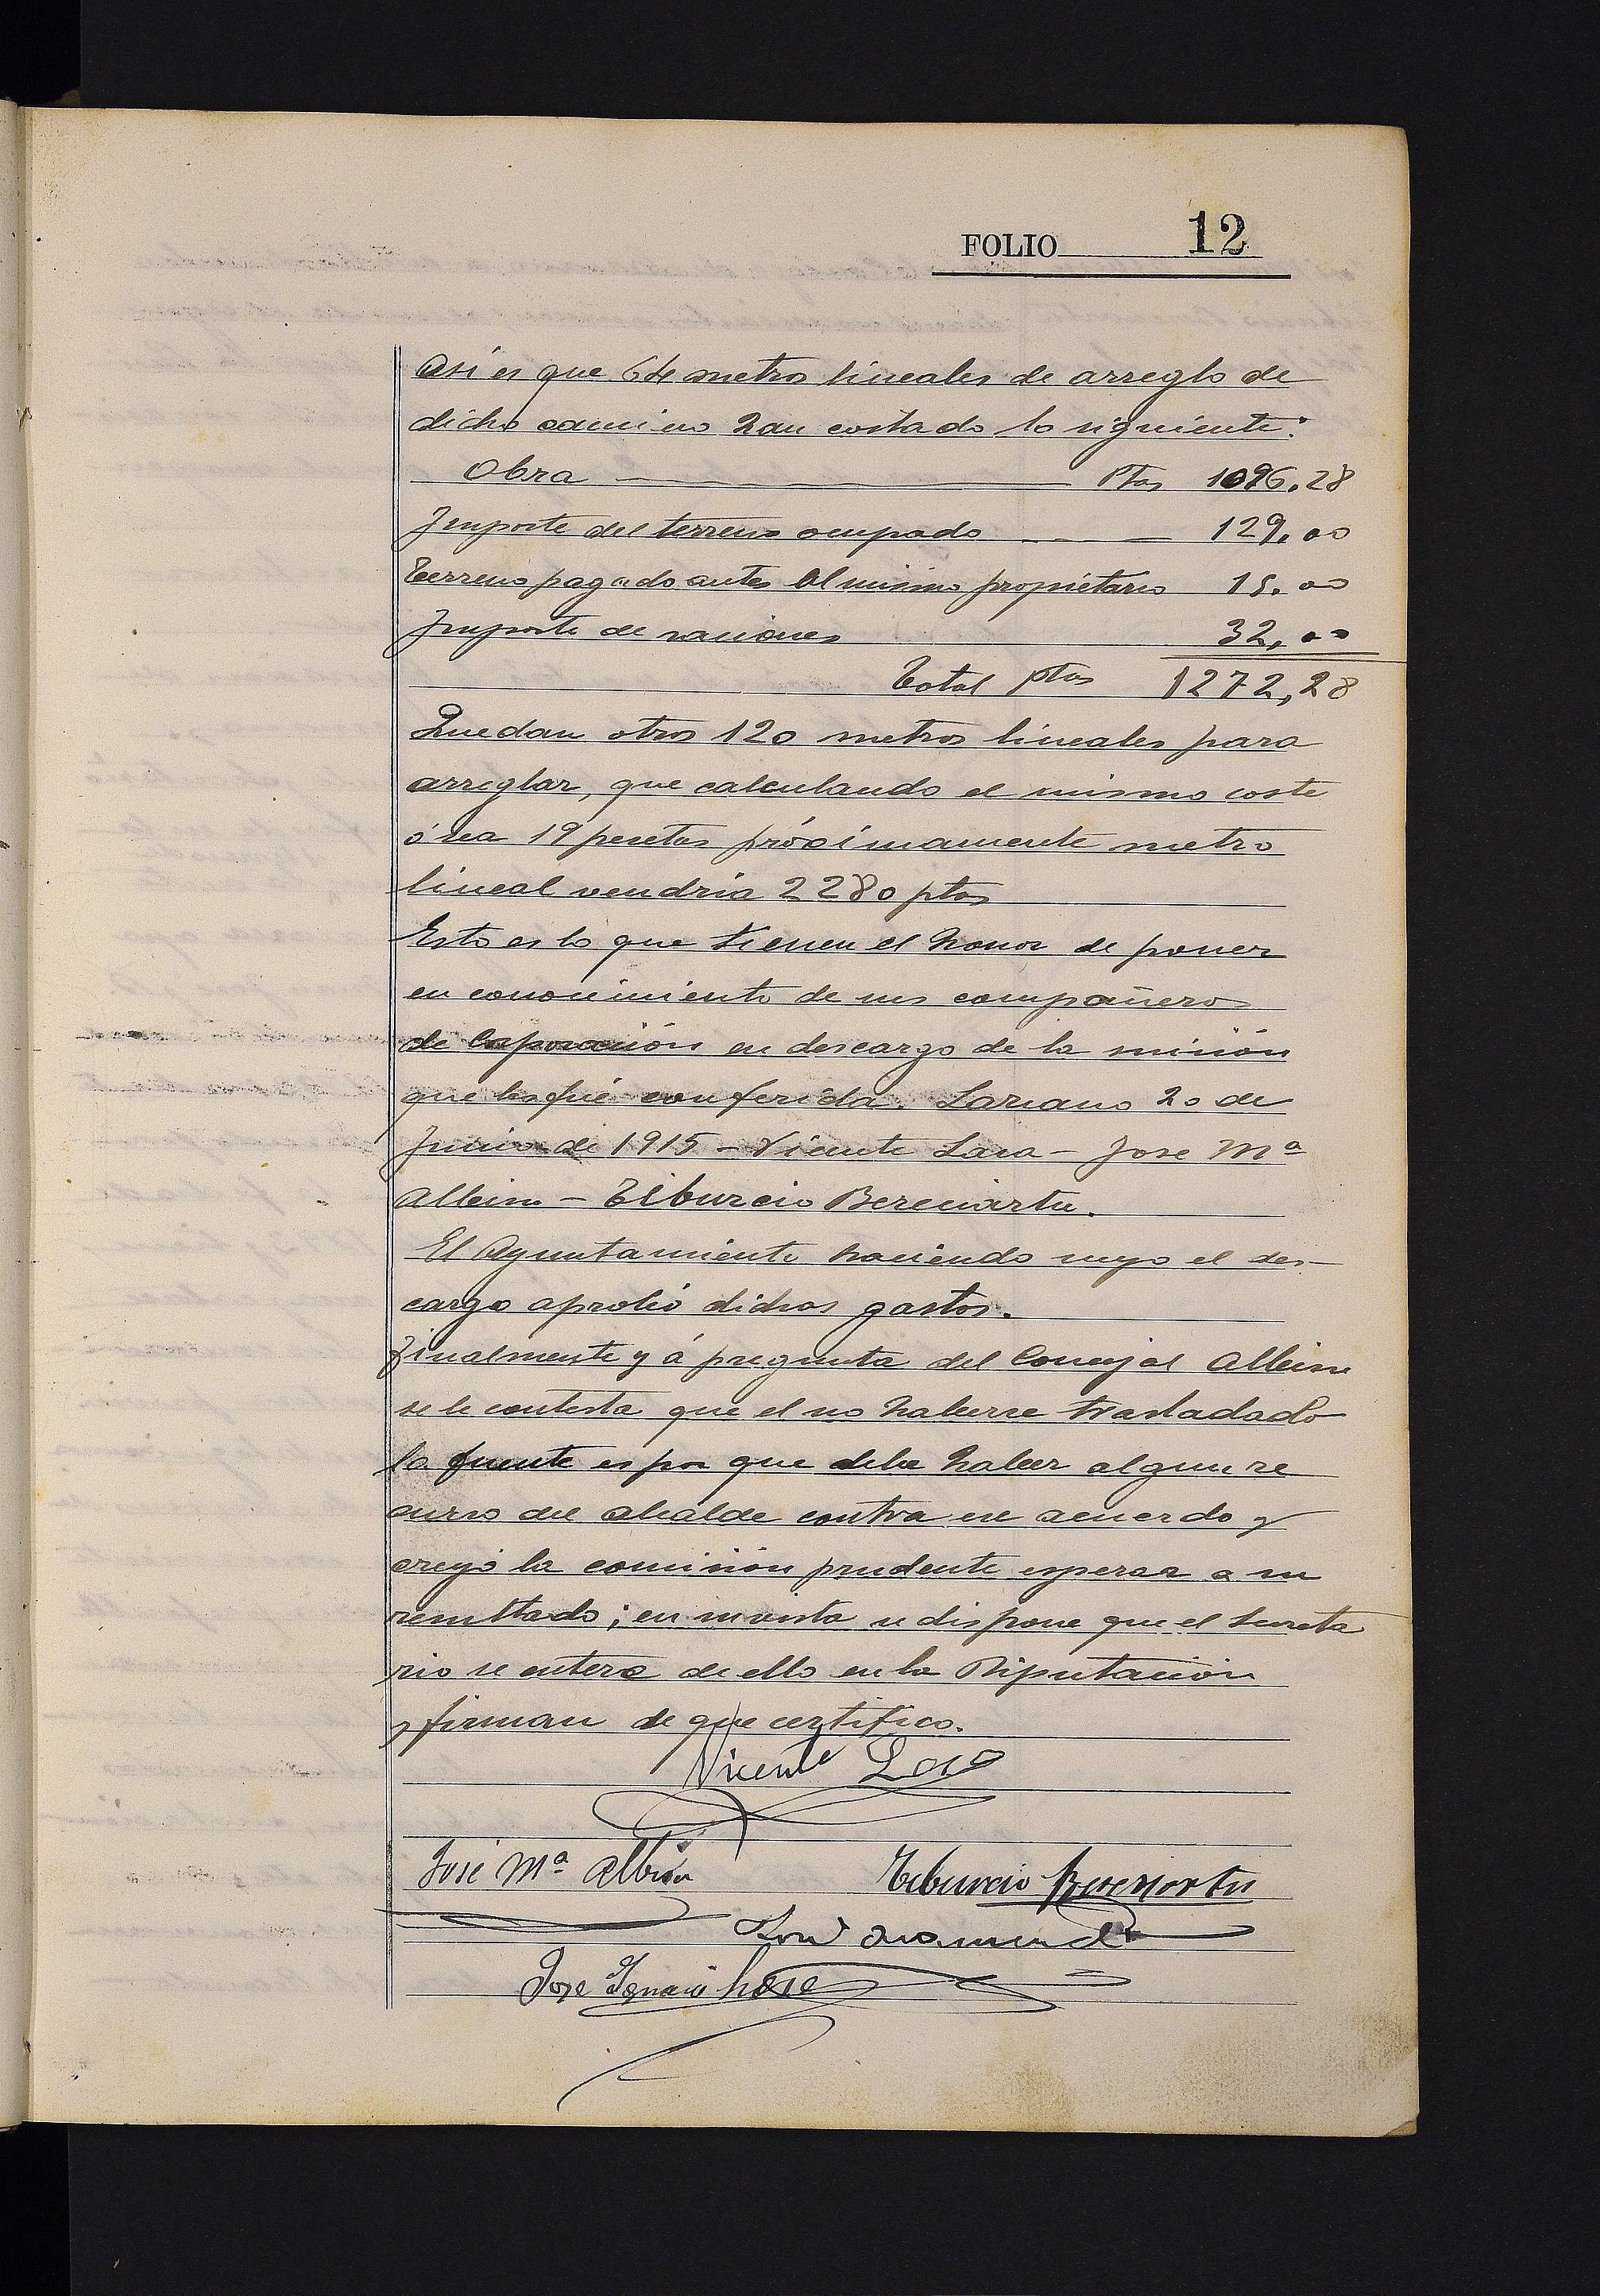 FOLIO 12
Asi es que 64 metros lineales de arreglo de
dicho camino han costado lo siguiente:
Obra Ptas 1096.28
Importe del terreno ocupado 129.00
Terreno pagado antes al mismo propietario 15.00
Importe de raciones 32,00
Total ptas 1272,28
Quedan otros 120 metros lineales para
arreglar, que calculando el mismo coste
ó sea 19 pesetas próximamente metro
lineal vendria 2280 ptas
Esto es lo que tienen el honor de poner
en conocimiento de sus compañeros
de Corporación en descargo de la misión
que les fué conferida. Lazcano 20 de
Junio de 1915 - Vicente Lasa - Jose Mª
Albisu - Tiburcio Bereciartu.
El Ayuntamiento haciendo suyo el des-
cargo aprobó dichos gastos.
Finalmente y á pregunta del Concejal Albisu
se le contesta que el no haberse trasladado
la fuente es por que debe haber algun re
curso del alcalde contra ese acuerdo y
creyó la comisión prudente esperar a su
resultado; en su vista se dispone que el Secreta
rio se entere de ello en la Diputación
y firman de que certifico.
Vicente Lasa
José Mª Albisu Tiburcio Bereciartu
José Ignacio